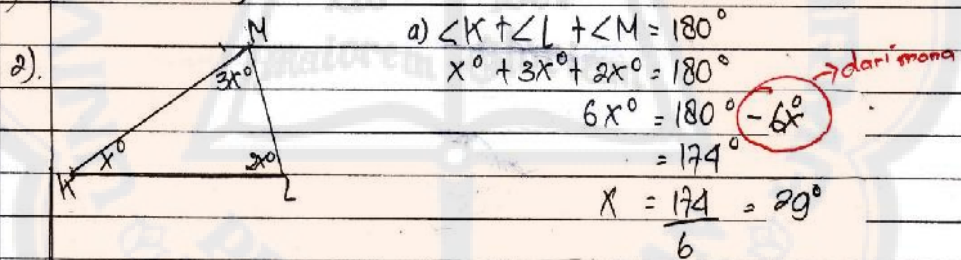 2).
M
3x°
x°
2x°
K
L
a) <K + <L + <M = 180°
x° + 3x° + 2x° = 180°
6x° = 180° - 6x°
→ dari mana
= 174°
x = 174/6 = 29°